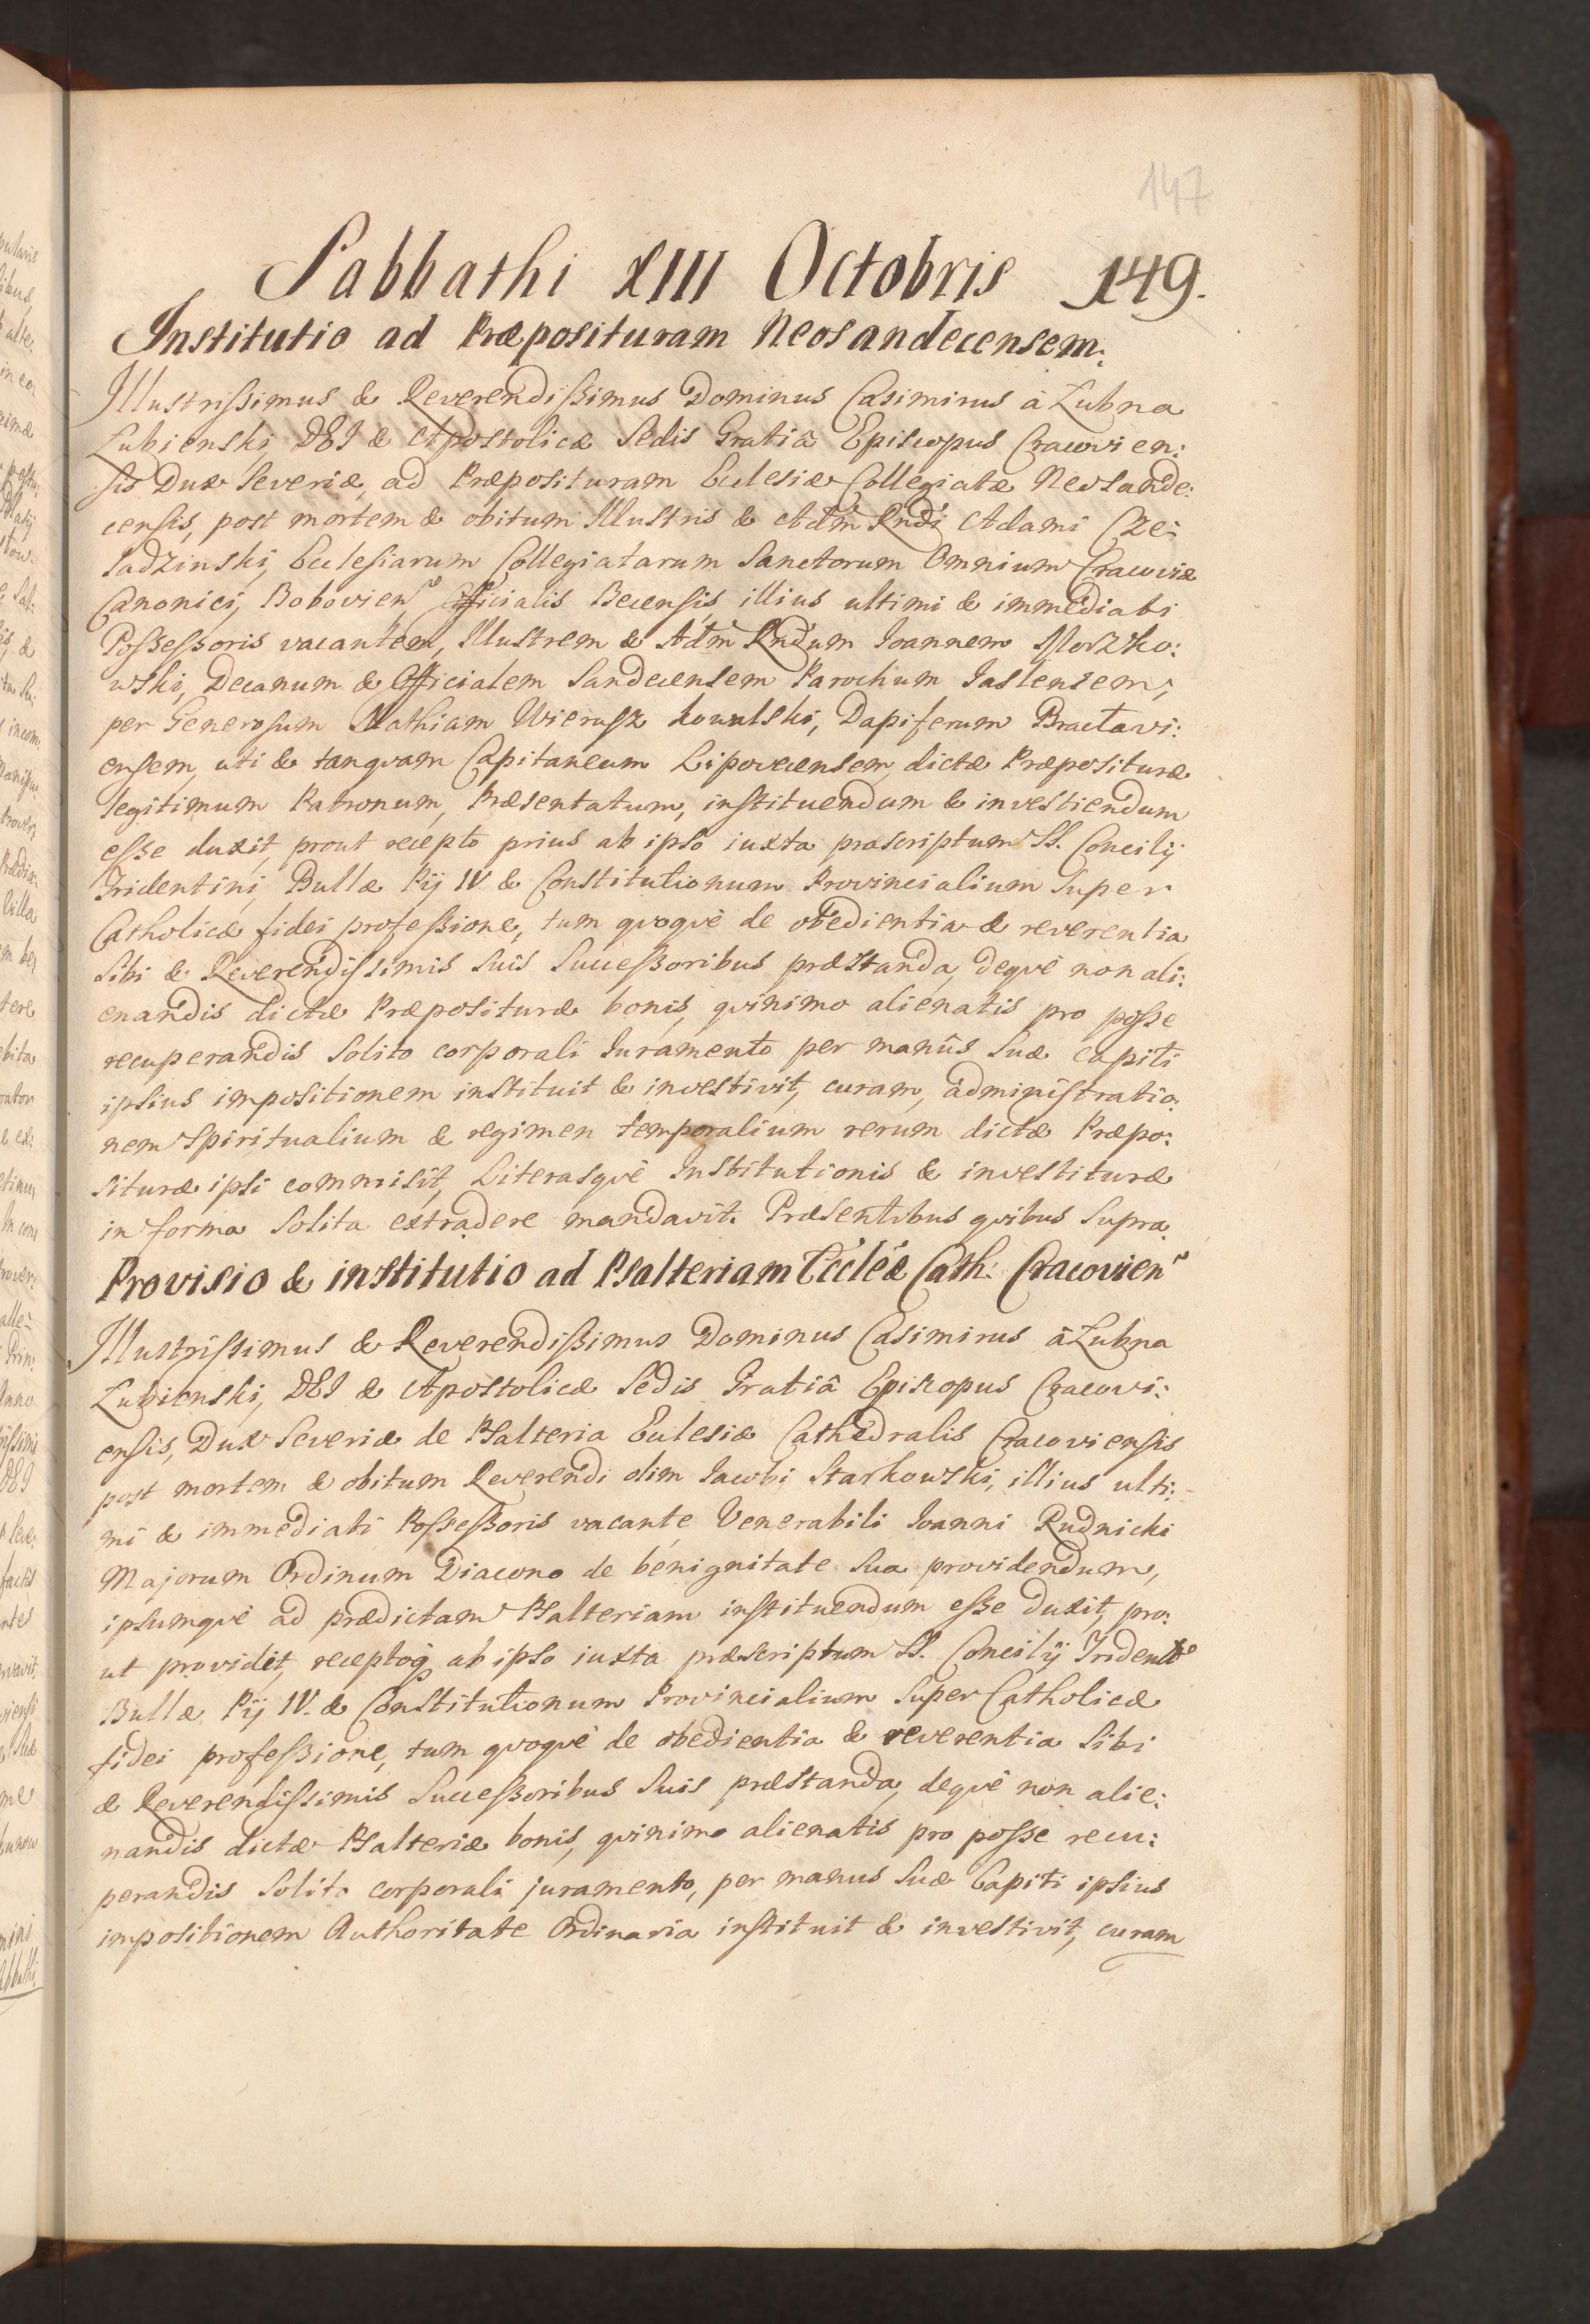 147
Sabbathi XIII Octobris 149.
Institutio ad Præposituram Neosandecensem:
Illustrissimus & Reverendissimus Dominus Casimirus à Łubna
Łubienski, DEI & Apostolicæ Sedis Gratiâ Episcopus Cracovien:
sis Dux Severiæ, ad Præposituram Ecclesiæ Collegiatæ Neosande:
censis, post mortem & obitum Illustris & Adm Rndi Adami Cze:
ladzinski, Ecclesiarum Collegiatarum Sanctorum Omnium Cracoviæ
Canonici, Bobovien Officialis Becensis, illius ultimi & immediati
Possessoris vacantem, Illustrem & Adm Rndum Ioannem Morzko:
wski, Decanum & Officialem Sandecensem Parochum Iaslensem,
per Generosum Mathiam Wierusz Kowalski, Dapiferum Braclavi:
ensem, uti & tanqvam Capitaneum Lipovecensem, dictæ Præposituræ
legitimum Patronum, Præsentatum, instituendum & investiendum
esse duxit, prout recepto prius ab ipso iuxta præscriptum SS. Concilij
Tridentini, Bullæ Pij IV & Constitutionum Provincialium super
Catholicæ fidei professione, tum qvoqvè de obedientia & reverentia
sibi & Reverendissimis suis Successoribus præstanda, deqvè non ali:
enandis dictæ Præposituræ bonis, qvinimo alienatis pro posse
recuperandis solito corporali Iuramento per manûs suæ capiti
ipsius impositionem instituit & investivit, curam, administratio:
nem spiritualium & regimen temporalium rerum dictæ Præpo:
situræ ipsi commisit, Literasqvè Institutionis & investituræ
in forma solita extradere mandavit. Præsentibus qvibus supra.
Provisio & institutio ad Psalteriam Eccleæ Cath: Cracovien
Illustrissimus & Reverendissimus Dominus Casimirus à Łubna
Łubienski, DEI & Apostolicæ Sedis Gratiâ Episcopus Cracovi:
ensis, Dux Severiæ de Psalteria Ecclesiæ Cathedralis Cracoviensis
post mortem & obitum Reverendi olim Iacobi Starkowski, illius ulti:
mi & immediati Possessoris vacante Venerabili Ioanni Rudnicki
Majorum Ordinum Diacono de benignitate sua providendum,
ipsumqvè ad prædictam Psalteriam instituendum esse duxit, pro:
ut providit, receptoq ab ipso iuxta præscriptum SS. Concilij Trident
Bullæ Pij IV. & Constitutionum Provincialium super Catholicæ
fidei professione, tum qvoqvè de obedientia & reverentia sibi
& Reverendissimis Successoribus suis præstanda, deqvè non alie:
nandis dictæ Psalteriæ bonis, qvinimo alienatis pro posse recu:
perandis solito corporali juramento, per manus suæ Capiti ipsius
impositionem Authoritate Ordinaria instituit & investivit, curam